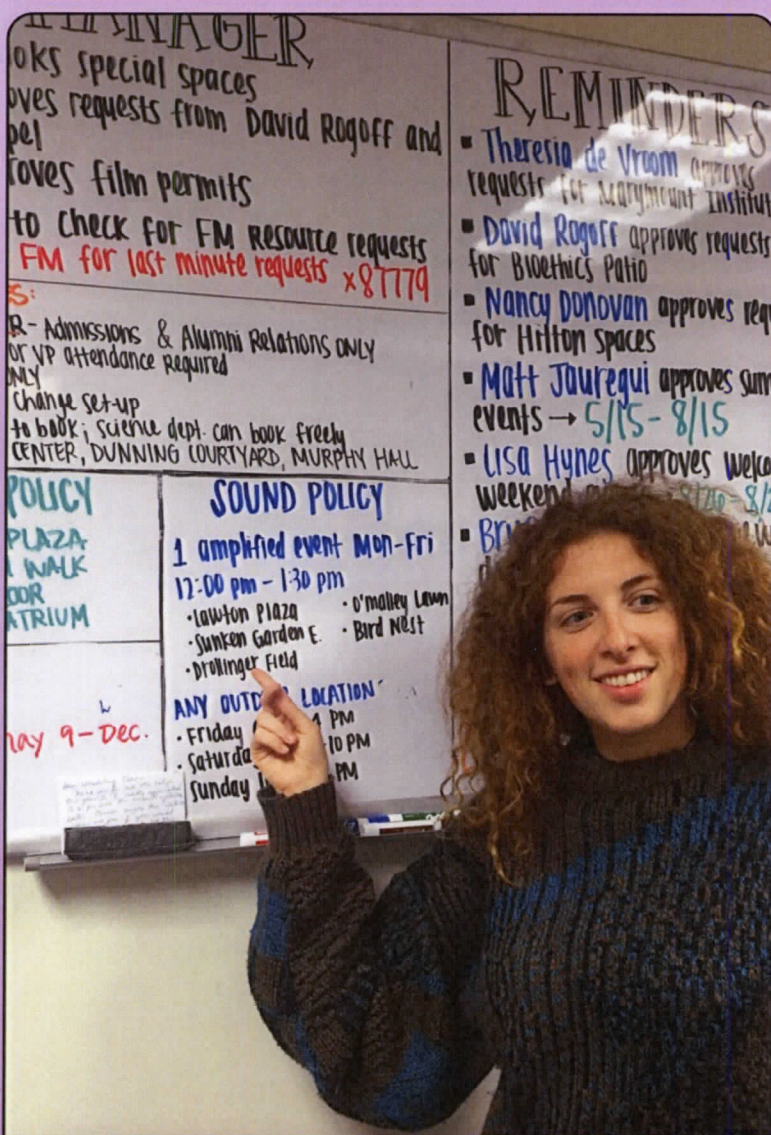 MANAGER
oks special spaces
oves requests from David Rogoff and
pel
roves film permits
to check for FM Resource requests
FM for last minute requests x87779
S:
R- Admissions & Alumni Relations ONLY
or VP attendance required
ONLY
change set-up
to book; science dept. can book freely
CENTER, DUNNING COURTYARD, MURPHY HALL
POLICY
PLAZA
WALK
OOR
ATRIUM
ay 9-Dec.
SOUND POLICY
1 amplified event Mon-Fri
12:00 pm - 1:30 pm
• Lawton Plaza
• Sunken Garden E.
• Drollinger Field
• O'malley Lawn
• Bird Nest
ANY LOCATION
• Friday PM
• Saturda 10 PM
Sunday PM
REMINDERS
▪ Theresia de Vroom approves
requests for Marymount Institut
▪ David Rogoff approves requests
for Bioethics Patio
▪ Nancy Donovan approves req
for Hilton Spaces
▪ Matt Jauregui approves sum
events → 5/15 - 8/15
▪ Lisa Hynes approves welco
weekend
▪ Bru